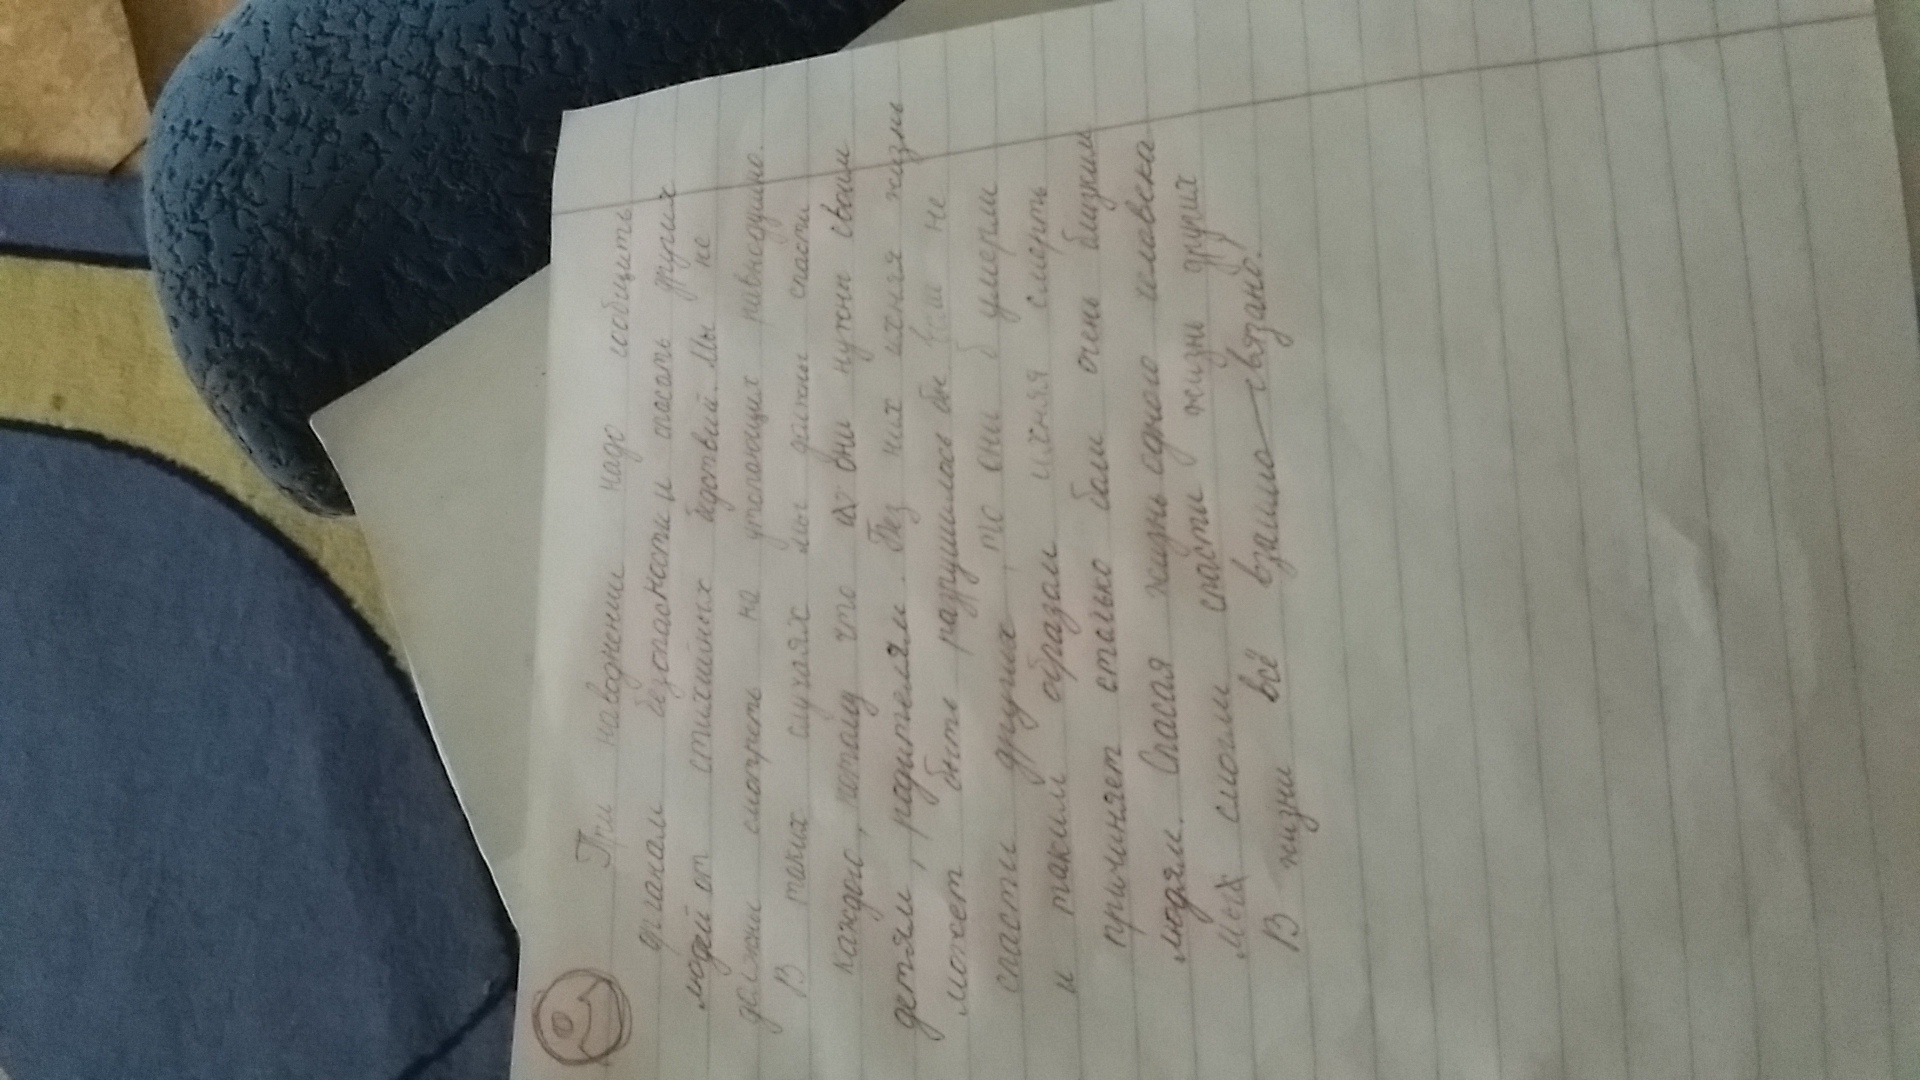 При наводнении надо сообщить
органам безопасности и спасать других
людей от стихийных бедствий. Мы не
должны смотреть на утопающих равнодушно.
В таких случаях мы должны спасти
каждого, потому что они нужны своим
детям, родителям. Без них ихняя жизнь
может быть разрушилась бы если не
спасти других, то они б умерли
и таким образом ихняя смерть
причиняет столько боли очень близким
людям. Спасая жизнь одного человека
мы смогли спасти жизни других
В жизни всё взаимо-связано.